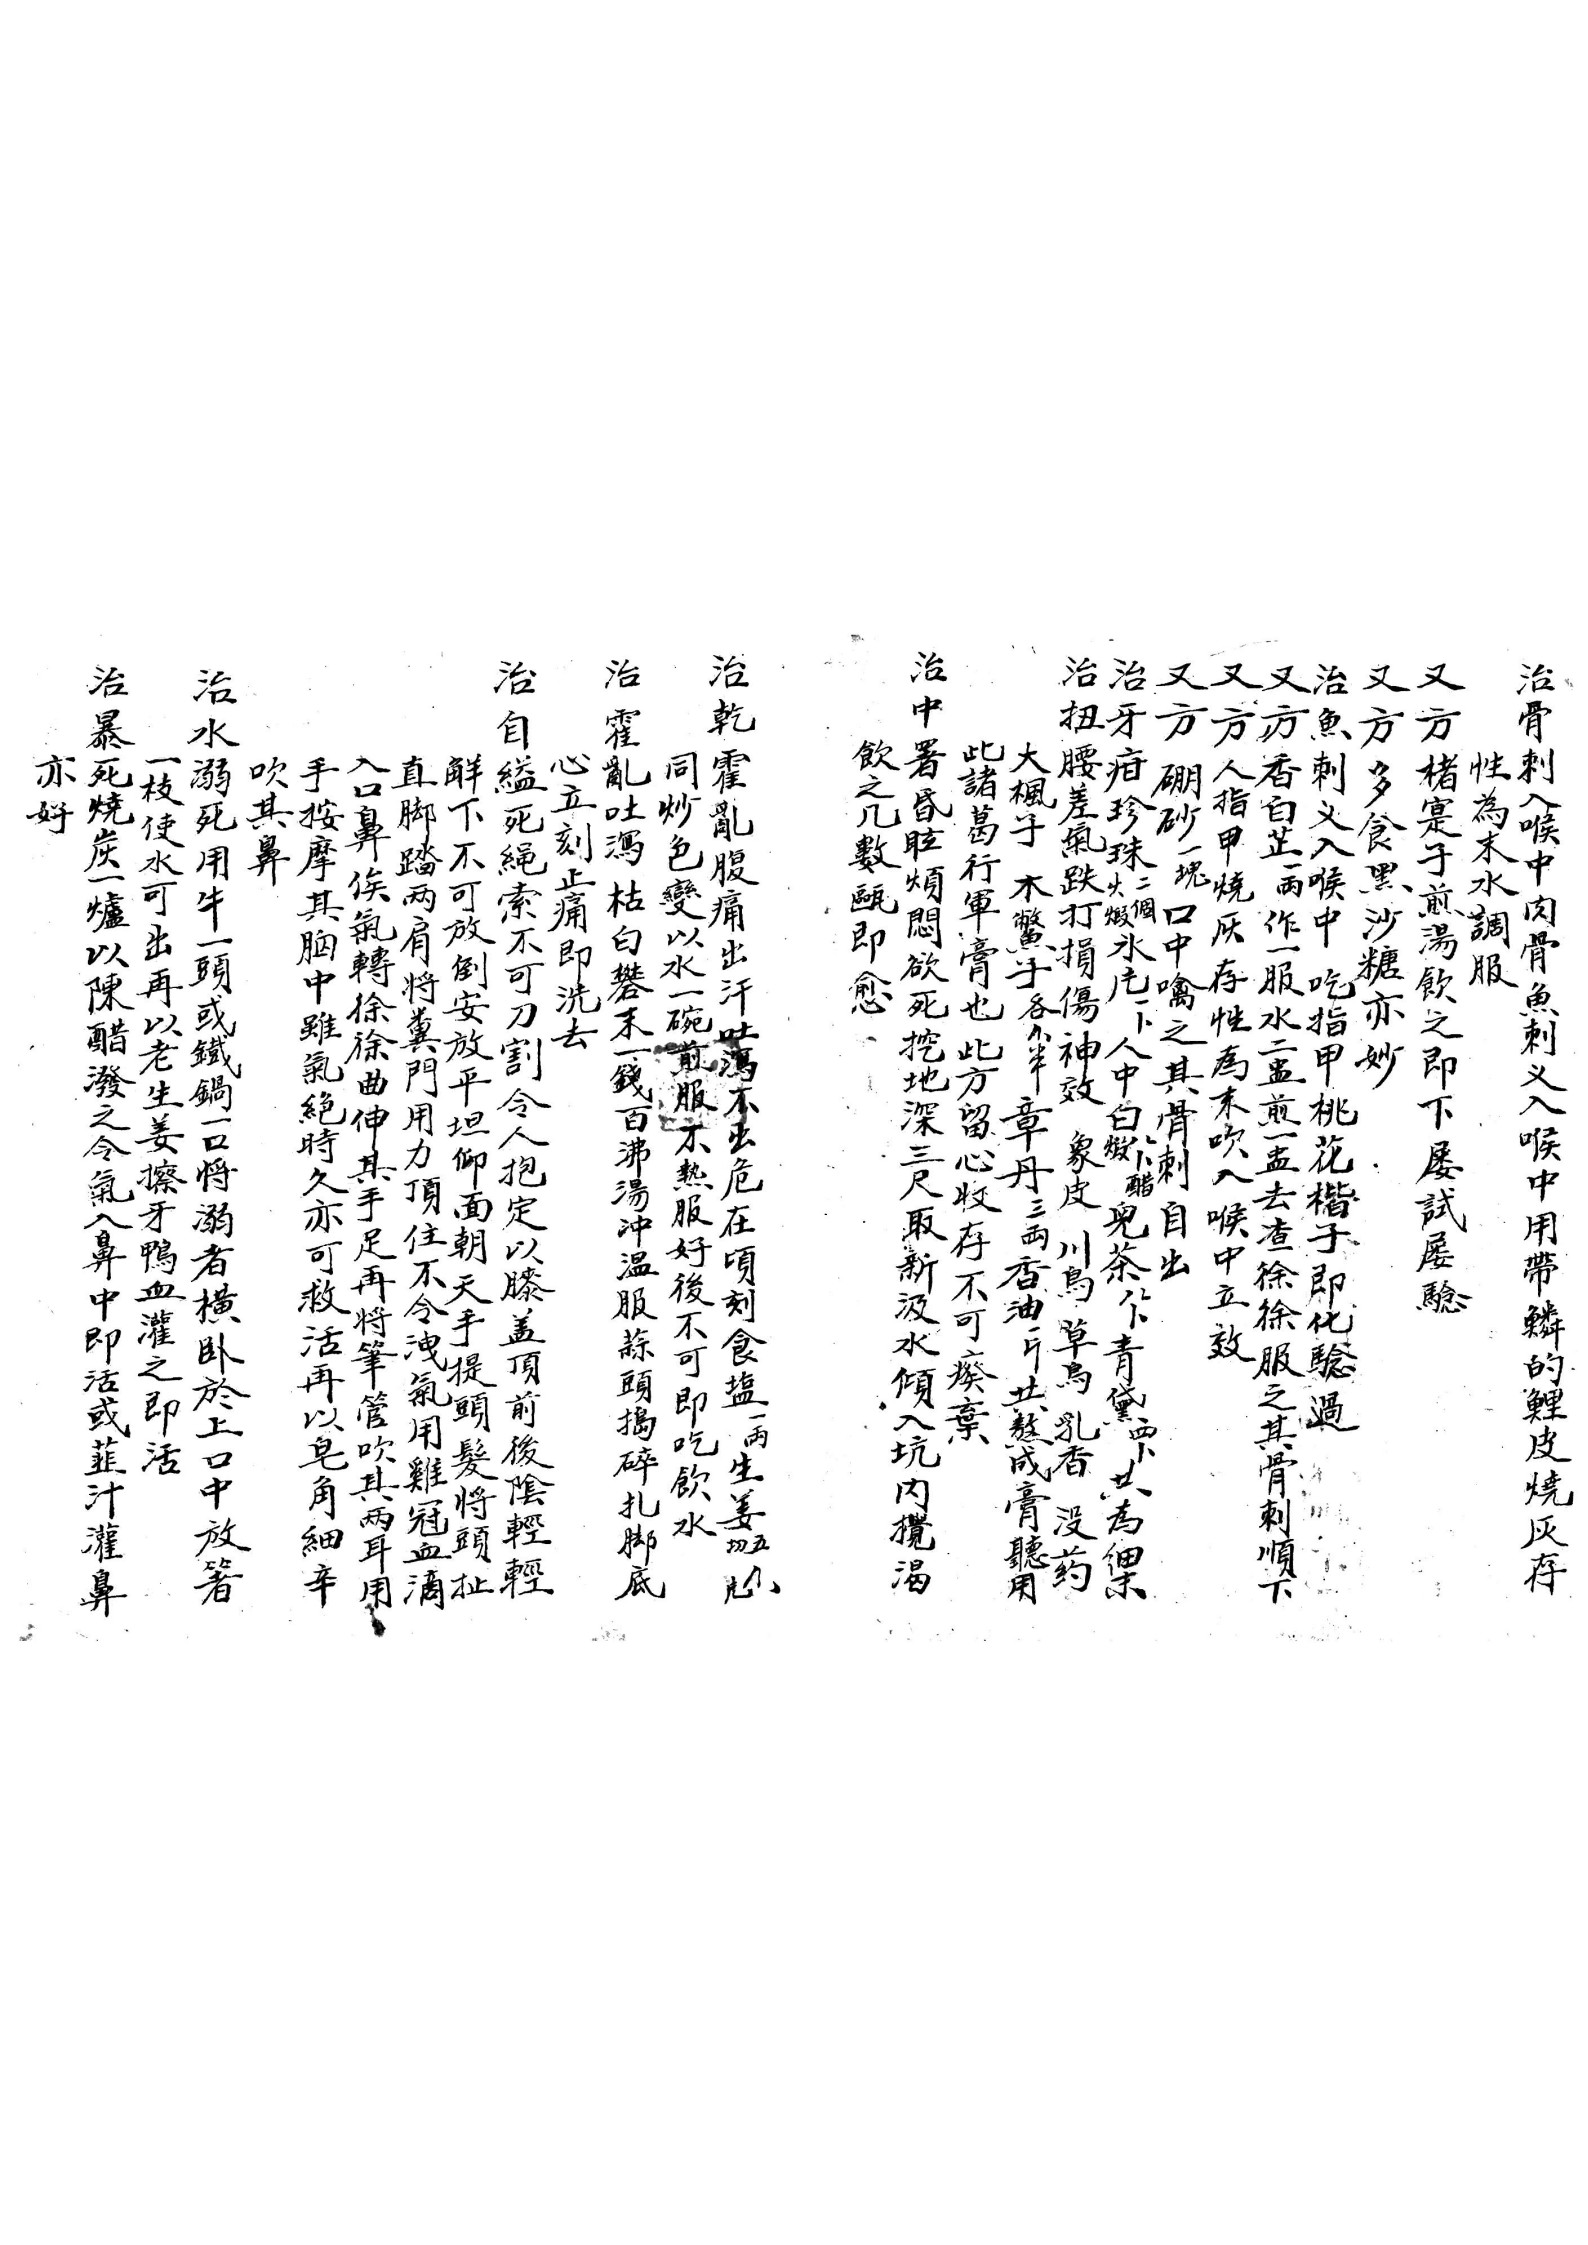 治骨刺入喉中肉骨魚刺义入喉中用帶鱗的鯉皮燒灰存
性為末水調服
又方楮寔子煎湯飲之即下屡試屡驗
又方多食黑沙糖亦妙
治魚刺义入喉中吃指甲桃花楷子即化驗過
又方香白芷一兩作一服水二盅煎一盅去查徐徐服之其骨刺順下
又方人指甲燒灰存性為末吹入喉中立效
又方硼砂一塊口中噙之其骨刺自出
治牙疳珍珠二個火煅氷片人中白煅醋兒茶青黛共為細末
治扭腰差氣跌打損傷神效 象皮 川烏 草烏 乳香 没药
大楓子 木鱉子各 章丹三兩香油 共熬成膏聽用
此諸葛行軍膏也此方留心收存不可癈棄
治中署昏眩煩悶欲死挖地深三尺取新汲水傾入坑内攪渴
飲之几數甌即愈
治乾霍亂腹痛出汗吐瀉不出危在頃刻食塩一兩生姜切五
同炒色變以水一碗煎服不熱服好後不可即吃飲水
治霍亂吐瀉枯白礬末一錢百沸湯冲温服蒜頭搗碎扎脚底
心立刻止痛即洗去
治自縊死繩索不可刀割令人抱定以膝盖頂前後陰輕輕
解下不可放倒安放平坦仰面朝天手提頭髮將頭扯
直脚踏两肩将糞門用力頂住不令洩氣用雞冠血滴
入口鼻俟氣轉徐徐曲伸其手足再将筆管吹其两耳用
手按摩其胸中雖氣絕時久亦可救活再以皂角細辛
吹其鼻
治水溺死用牛一頭或鐵鍋一口将溺者橫卧於上口中放箸
一枝使水可出再以老生姜擦牙鴨血灌之即活
治暴死燒炭一爐以陳醋潑之令氣入鼻中即活或韮汁灌鼻
亦好